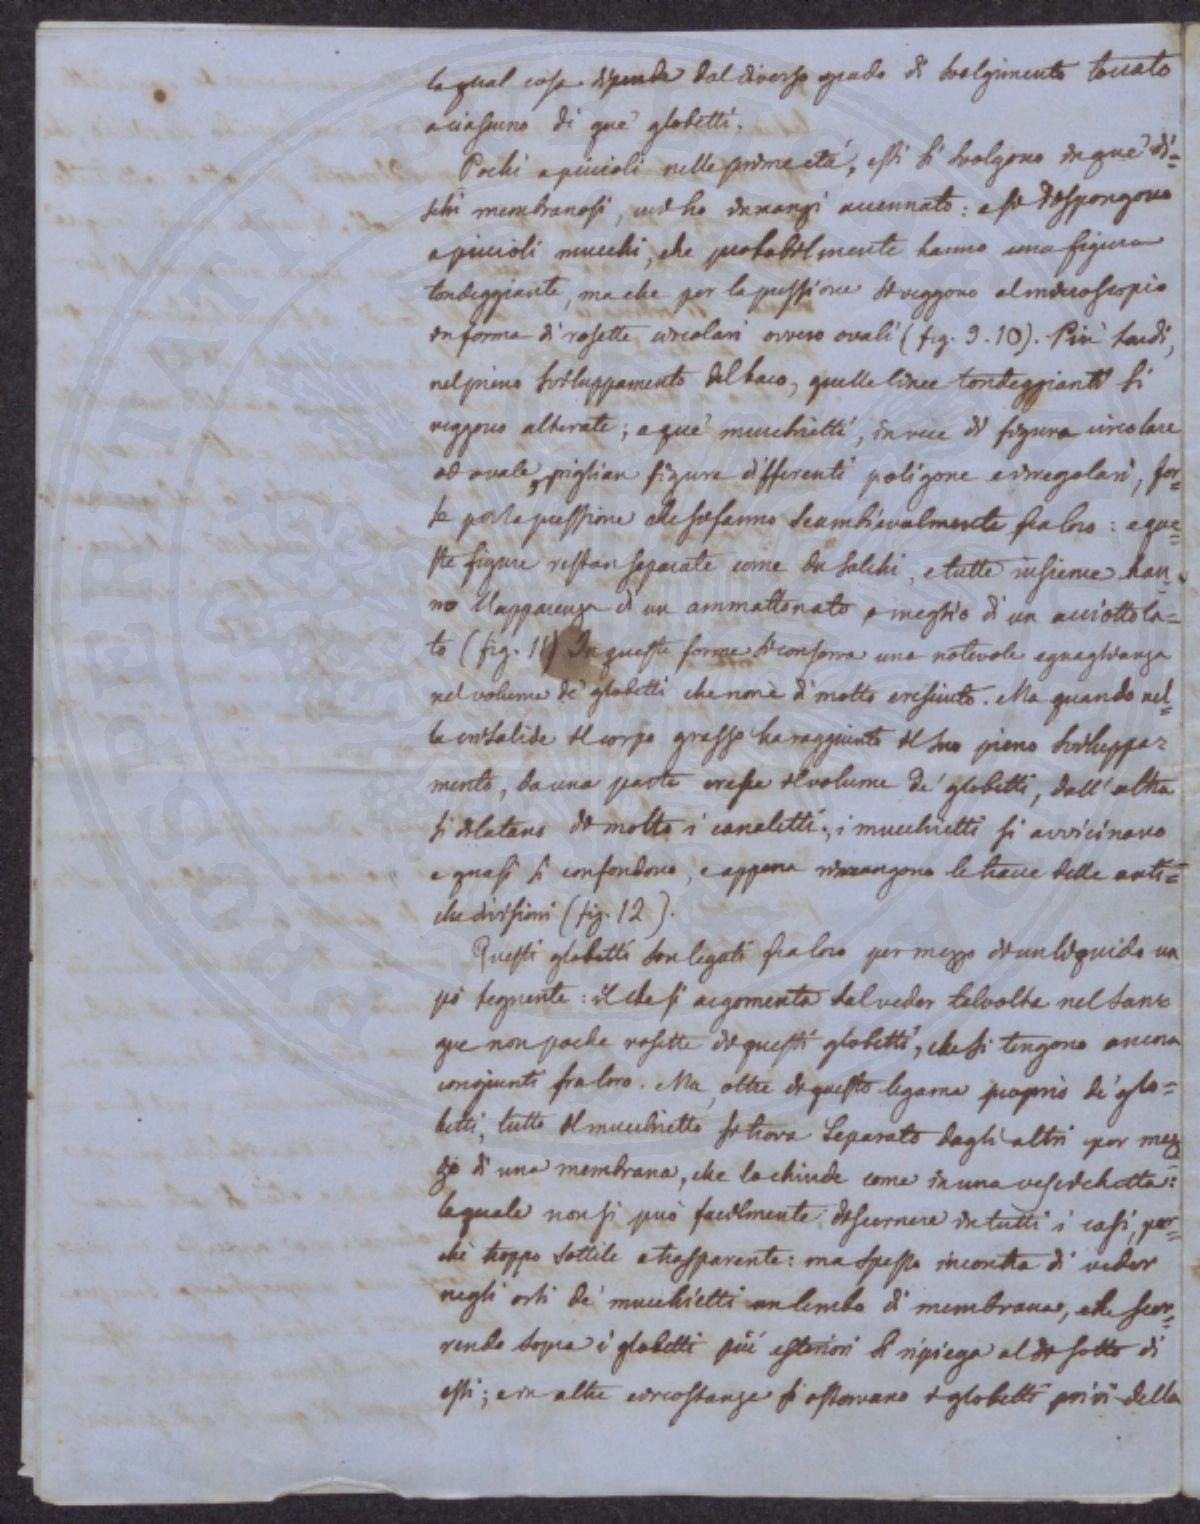 la qual cosa dipende dal diverso grado di svolgimento toccato
a ciascuno di que' globetti.
Pochi e piccioli nelle prime età, essi si svolgono in que' di=
schi membranosi, cui ho innanzi accennato: e si dispongono
a piccioli mucchi, che probabilmente hanno una figura
tondeggiante, ma che per la pressione si veggono al microscopio
in forma di rosette circolari ovvero ovali (fig. 9. 10). Più tardi,
nel pieno sviluppamento del baco, quelle linee tondeggianti si
veggono alterate; e que' mucchietti, in vece di figura circolare
od ovale, piglian figure differenti poligone e irregolari, for=
se per la pressione che si fanno scambievolmente fra loro: e que=
ste figure restan separate come da solchi, e tutte insieme han=
no l'apparenza di un ammattonato o meglio di un acciottola=
to (fig. 11) In queste forme si conserva una notevole eguaglianza
nel volume de' globetti che non è di molto cresciuto. Ma quando nel=
la crisalide il corpo grasso ha raggiunto il suo pieno sviluppa=
mento, da una parte cresce il volume de' globetti, dall'altra
si dilatano di molto i canaletti; i mucchietti si avvicinano
e quasi si confondono, e appena rimangono le tracce delle anti=
che divisioni (fig. 12).
Questi globetti son legati fra loro per mezzo di un liquido un
pò tegnente: il che si argomenta dal veder talvolta nel san=
gue non poche rosette di questi globetti, che si tengono ancora
congiunti fra loro. Ma, oltre di questo legame proprio de' glo=
betti, tutto il mucchietto si trova separato dagli altri per mez=
zo di una membrana, che lo chiude come in una vescichetta:
la quale non si può facilmente discernere in tutti i casi, per=
chè troppo sottile e trasparente: ma spesso incontra di veder
negli orli de' mucchietti un lembo di membrana, che scor=
rendo sopra i globetti più esteriori si ripiega al di sotto di
essi; e in altre circostanze si osservano i globetti privi della